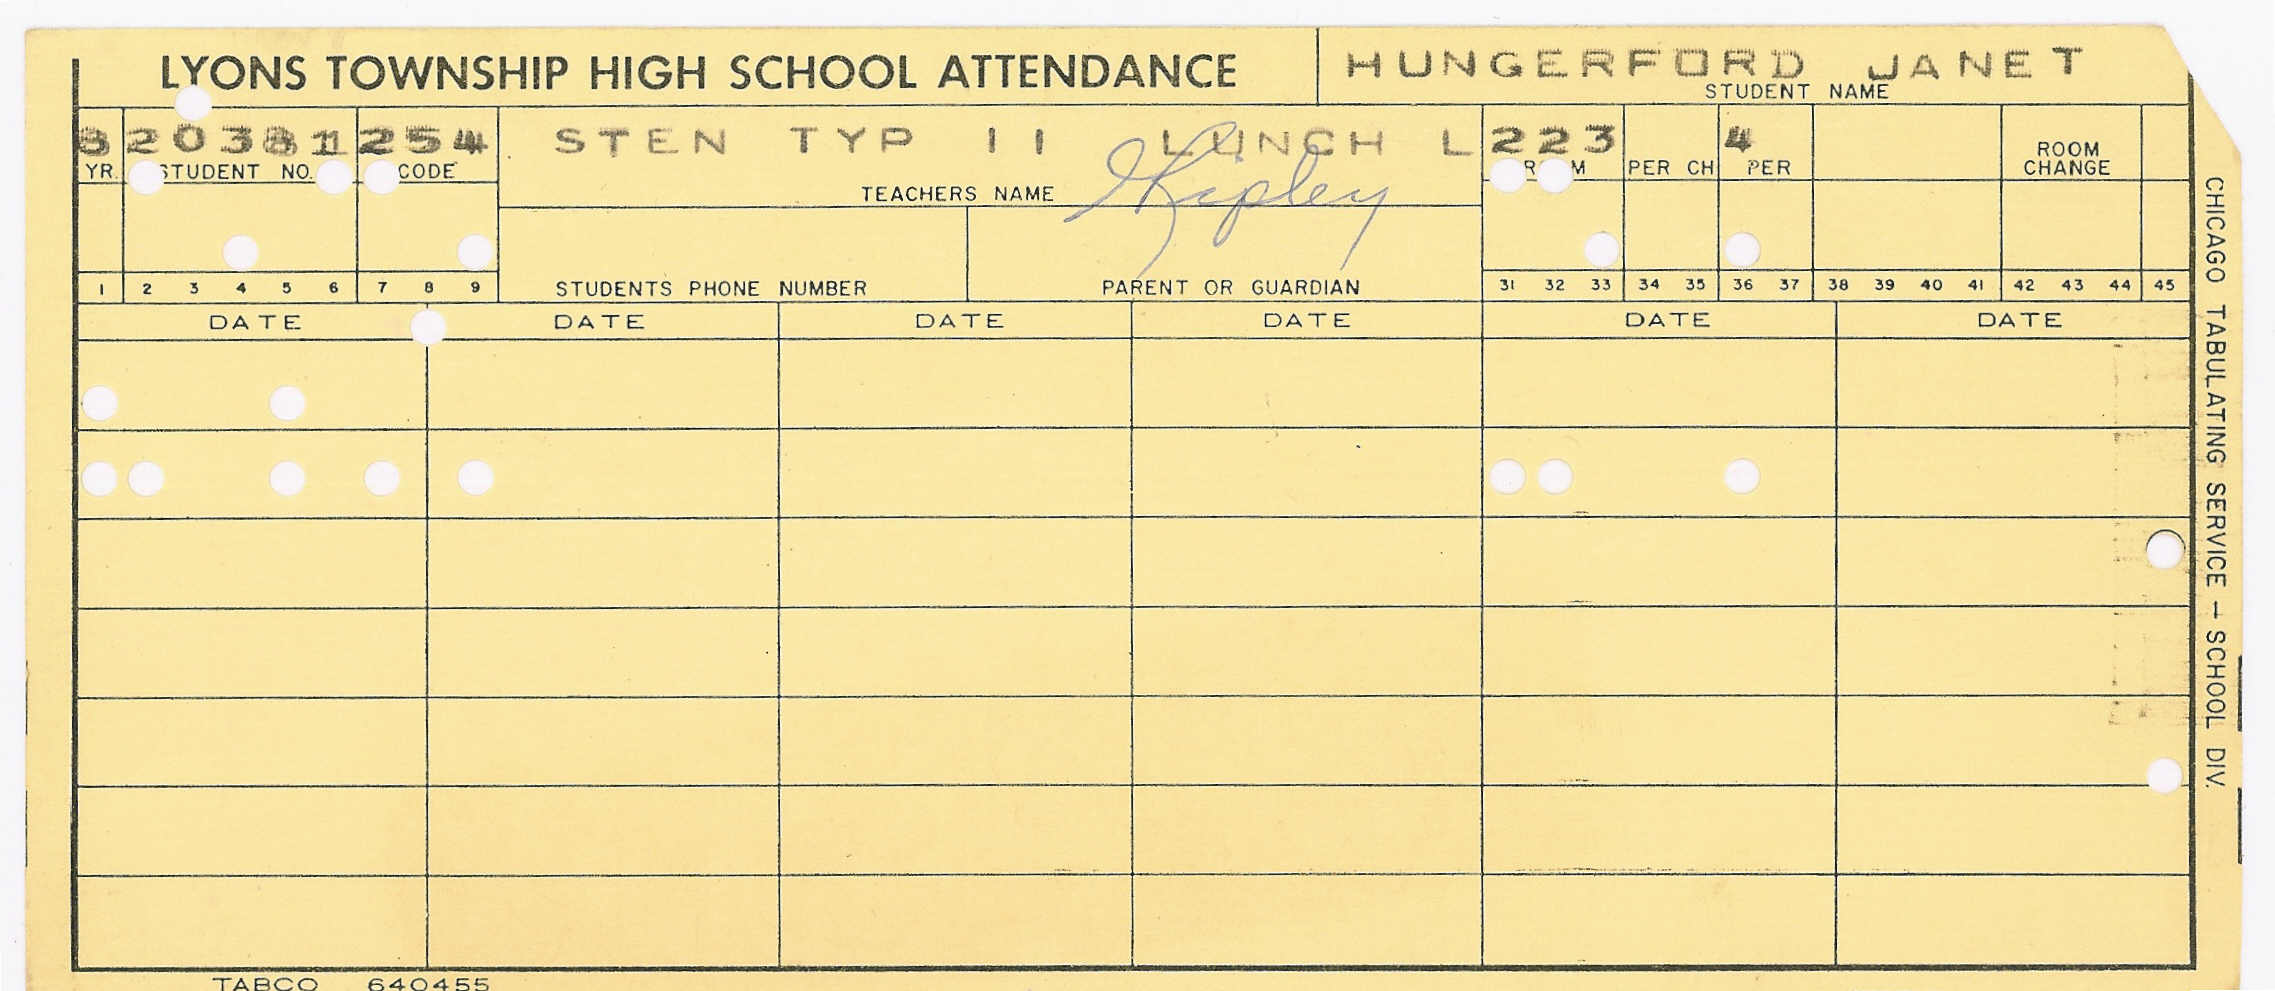 LYONS TOWNSHIP HIGH SCHOOL ATTENDANCE
HUNGERFORD JANET
STUDENT NAME
8 20381 254 STEN TYP II LUNCH L 223 4
YR. STUDENT NO. CODE TEACHERS NAME Ripley R M PER CH PER ROOM CHANGE
STUDENTS PHONE NUMBER PARENT OR GUARDIAN
1 2 3 4 5 6 7 8 9 31 32 33 34 35 36 37 38 39 40 41 42 43 44 45
DATE DATE DATE DATE DATE DATE
CHICAGO TABULATING SERVICE — SCHOOL DIV.
TABCO 640455